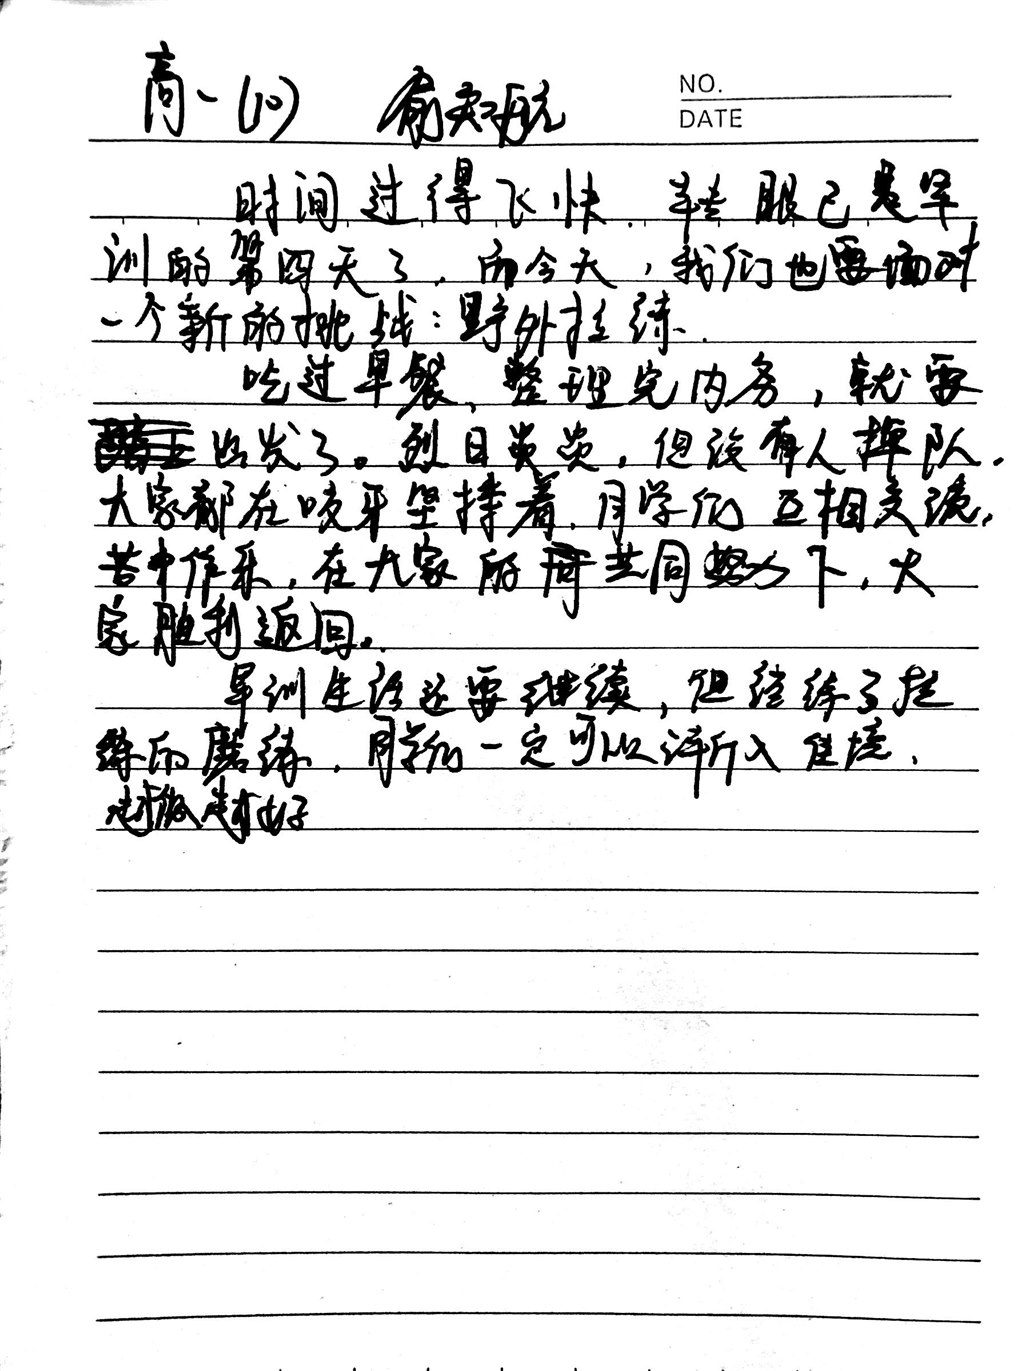 高一(10) 俞知航
NO.
DATE
时间过得飞快，转眼已是军
训的第四天了，而今天，我们也要面对
一个新的挑战：野外拉练.
吃过早餐，整理完内务，就要
出发了。烈日炎炎，但没有人掉队，
大家都在咬牙坚持着，同学们互相交流，
苦中作乐，在大家的共同努力下，大
家胜利返回。
军训生活还要继续，但经练了拉
练的磨练，同学们一定可以渐入佳境，
越做越好